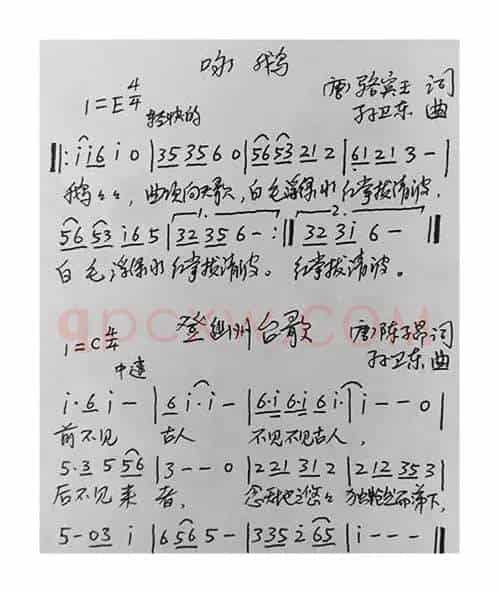 咏鹅
1=E 4/4 轻快的
(唐)骆宾王 词
孙卫东 曲
‖: i i 6 i 0 | 35 35 6 0 | 56 53 21 2 | 61 21 3 - |
鹅々々, 曲项向天歌, 白毛浮绿水 红掌拨清波.
56 53 i6 5 | 1. 32 35 6 - :‖ 2. 32 3i 6 - ‖
白毛浮绿水 红掌拨清波。 红掌拨清波。
qpcxw.COM
登幽州台歌
1=C 4/4 中速
(唐)陈子昂 词
孙卫东 曲
i· 6 i - | 6 i · i - | 6·i 6·i 6 i· | i - - 0 |
前不见 古人 不见不见古人,
5·3 5 56 | 3 - - 0 | 2 21 31 2 | 2 12 35 3 |
后不见来者, 念天地之悠々 独怆然而涕下,
5 - 03 i | 6 56 5 - | 335 2 65 | i - - - ‖